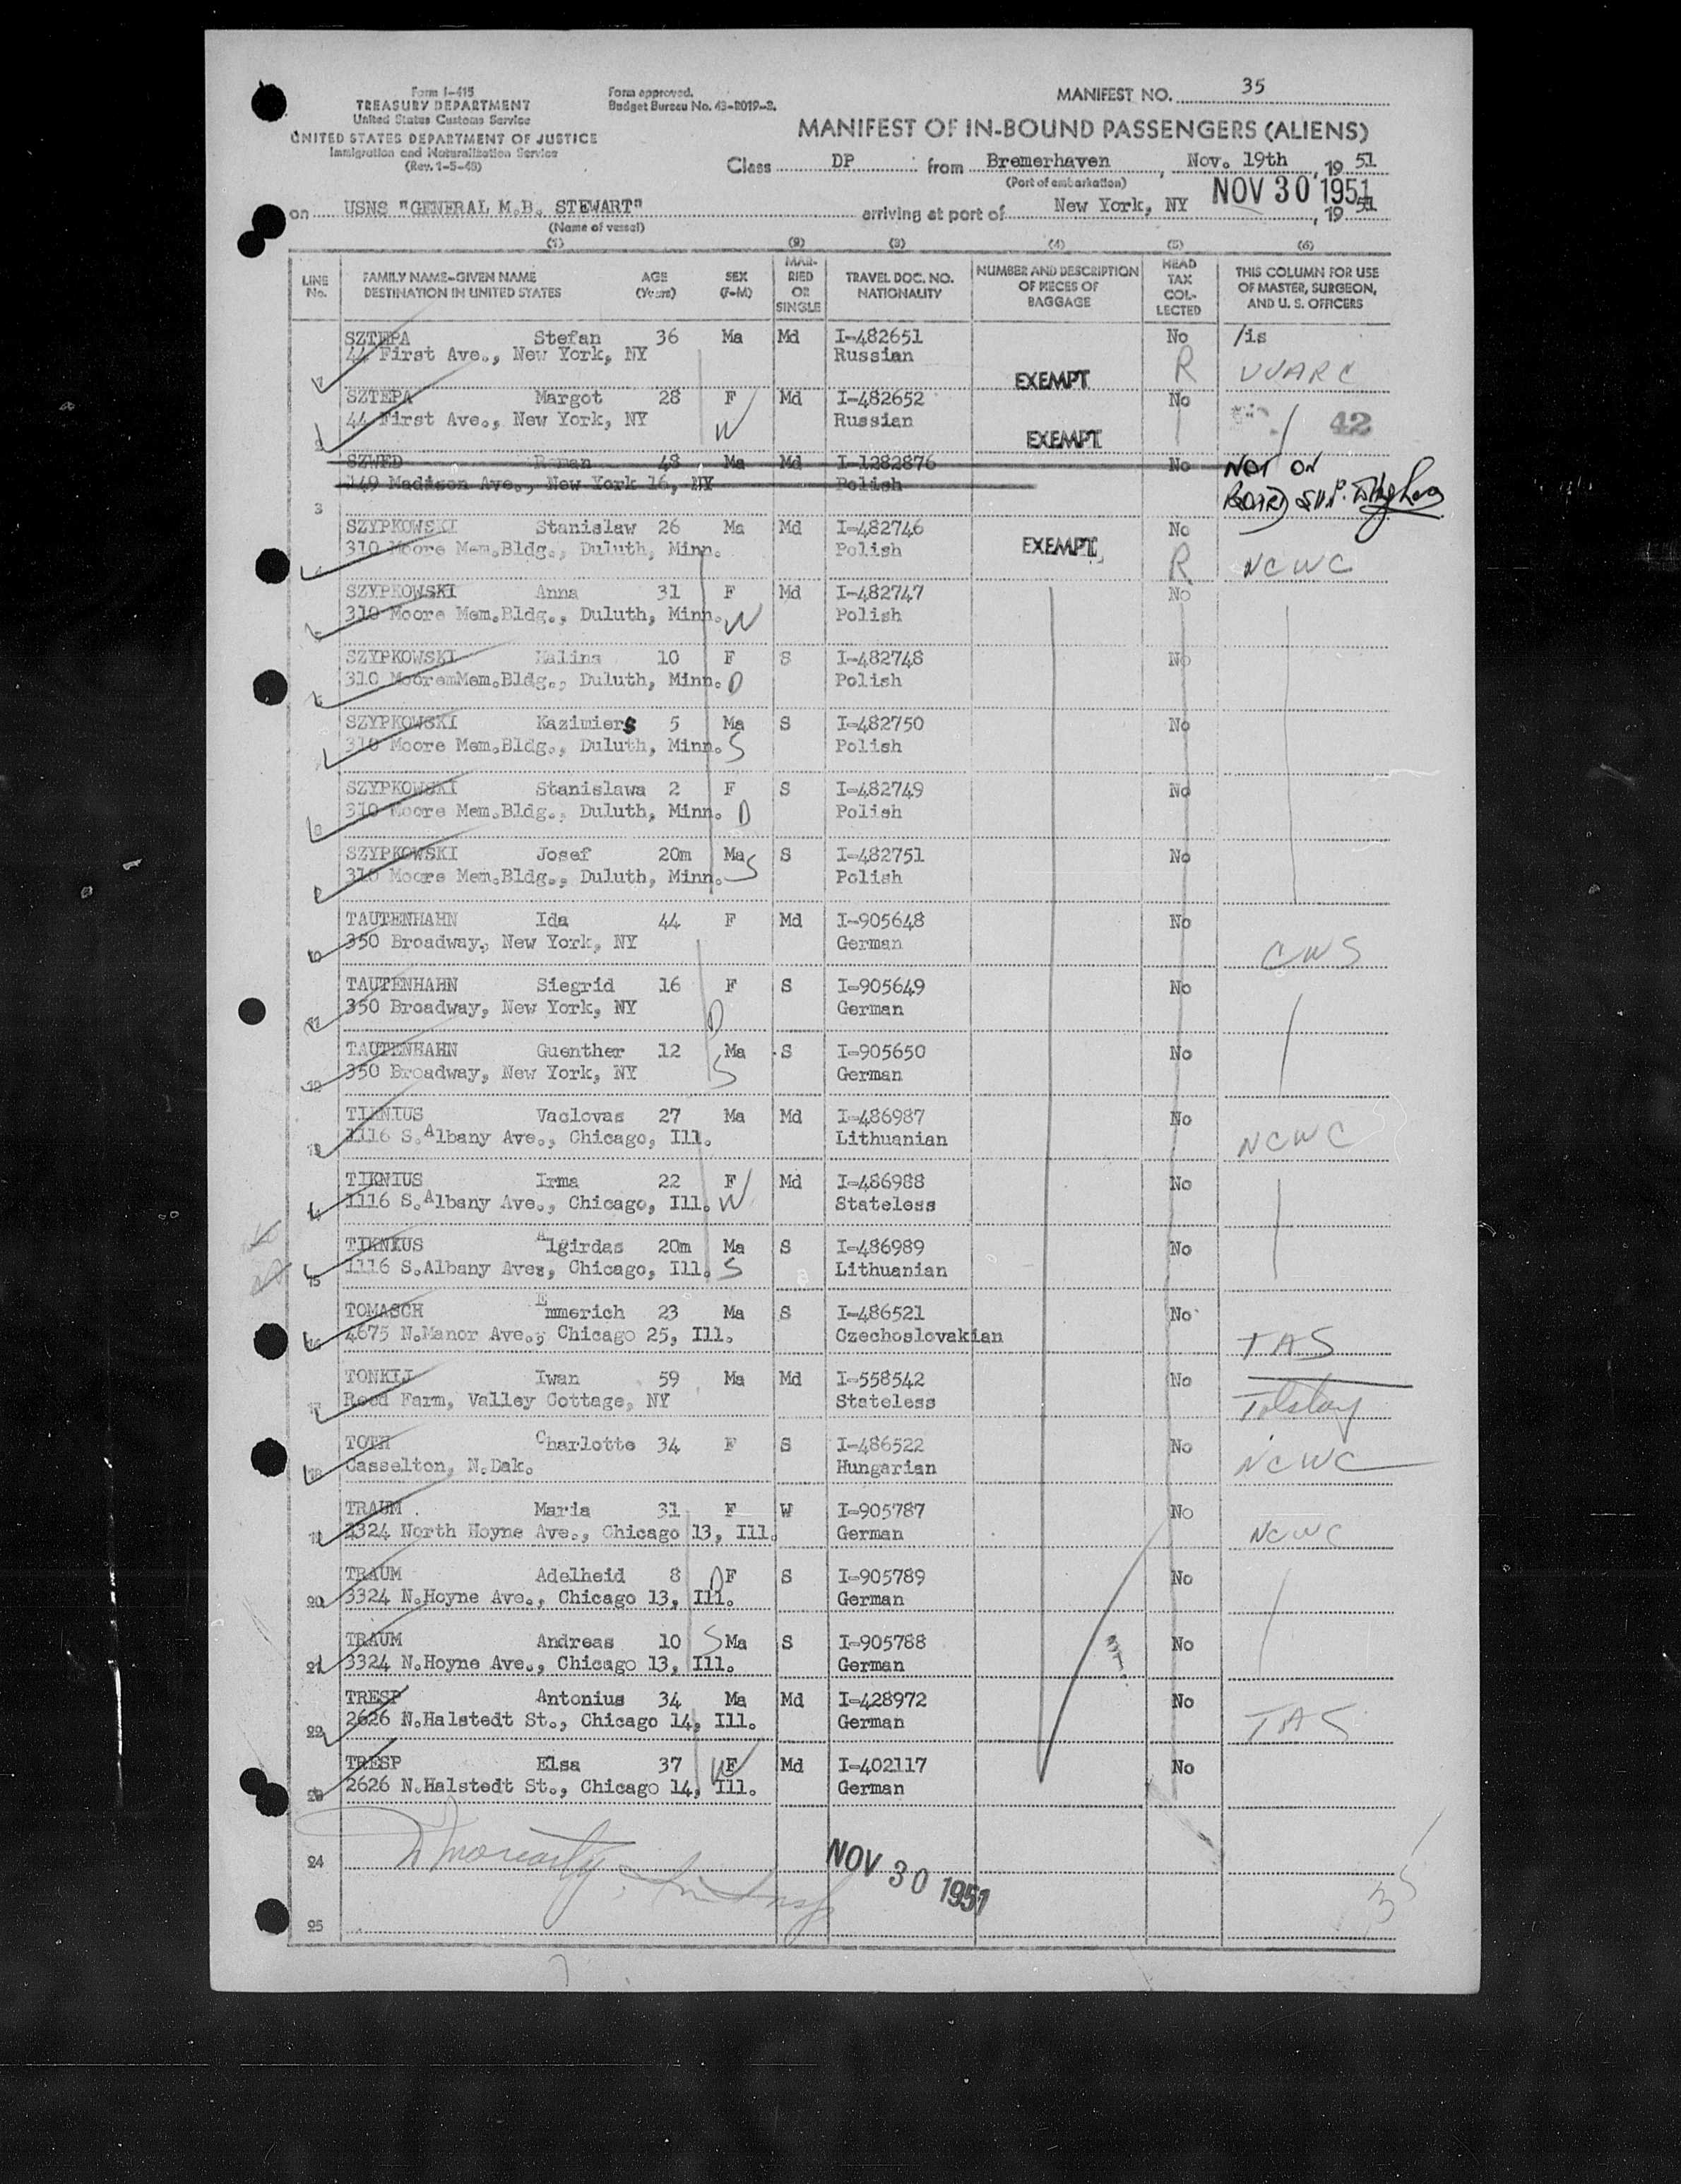 Form I-415
TREASURY DEPARTMENT
United States Customs Service
UNITED STATES DEPARTMENT OF JUSTICE
Immigration and Naturalization Service
(Rev. 1-5-48)
Form approved.
Budget Bureau No. 43-R019-2.
MANIFEST NO. 35
MANIFEST OF IN-BOUND PASSENGERS (ALIENS)
Class DP from Bremerhaven, Nov. 19th, 1951
(Port of embarkation)
NOV 30 1951
on USNS "GENERAL M.B. STEWART" arriving at port of New York, NY, 1951
(Name of vessel)
(1) (2) (3) (4) (5) (6)
LINE No. FAMILY NAME-GIVEN NAME DESTINATION IN UNITED STATES AGE (Years) SEX (F-M) MARRIED OR SINGLE TRAVEL DOC. NO. NATIONALITY NUMBER AND DESCRIPTION OF PIECES OF BAGGAGE HEAD TAX COLLECTED THIS COLUMN FOR USE OF MASTER, SURGEON, AND U. S. OFFICERS
SZTEPA Stefan 36 Ma Md I-482651 No /is
44 First Ave., New York, NY Russian EXEMPT R
SZTEPA Margot 28 F Md I-482652 No
44 First Ave., New York, NY W Russian EXEMPT 42
SZWED Roman 48 Ma Md I-1282876 No NOT ON
149 Madison Ave., New York 16, NY Polish BOARD
3
SZYPKOWSKI Stanislaw 26 Ma Md I-482746 No
310 Moore Mem.Bldg., Duluth, Minn. Polish EXEMPT R NCWC
SZYPKOWSKI Anna 31 F Md I-482747 No
310 Moore Mem.Bldg., Duluth, Minn. W Polish
SZYPKOWSKI Halina 10 F S I-482748 No
310 MooremMem.Bldg., Duluth, Minn. D Polish
SZYPKOWSKI Kazimiers 5 Ma S I-482750 No
310 Moore Mem.Bldg., Duluth, Minn. S Polish
SZYPKOWSKI Stanislawa 2 F S I-482749 No
8 310 Moore Mem.Bldg., Duluth, Minn. D Polish
SZYPKOWSKI Josef 20m Ma S I-482751 No
9 310 Moore Mem.Bldg., Duluth, Minn. S Polish
TAUTENHAHN Ida 44 F Md I-905648 No
10 350 Broadway, New York, NY German CWS
TAUTENHAHN Siegrid 16 F S I-905649 No
350 Broadway, New York, NY D German
TAUTENHAHN Guenther 12 Ma S I-905650 No
12 350 Broadway, New York, NY S German
TIKNIUS Vaclovas 27 Ma Md I-486987 No
13 1116 S.Albany Ave., Chicago, Ill. Lithuanian NCWC
TIKNIUS Irma 22 F Md I-486988 No
14 1116 S.Albany Ave., Chicago, Ill. W Stateless
TIKNIUS Algirdas 20m Ma S I-486989 No
15 1116 S.Albany Ave., Chicago, Ill. S Lithuanian
TOMASCH Emmerich 23 Ma S I-486521 No
16 4675 N.Manor Ave., Chicago 25, Ill. Czechoslovakian TAS
TONKIJ Iwan 59 Ma Md I-558542 No
17 Reed Farm, Valley Cottage, NY Stateless Tolstoy
TOTH Charlotte 34 F S I-486522 No
18 Casselton, N.Dak. Hungarian NCWC
TRAUM Maria 31 F W I-905787 No
19 3324 North Hoyne Ave., Chicago 13, Ill. German NCWC
TRAUM Adelheid 8 D F S I-905789 No
20 3324 N.Hoyne Ave., Chicago 13, Ill. German
TRAUM Andreas 10 S Ma S I-905788 No
21 3324 N.Hoyne Ave., Chicago 13, Ill. German
TRESP Antonius 34 Ma Md I-428972 No
22 2626 N.Halstedt St., Chicago 14, Ill. German TAS
TRESP Elsa 37 W F Md I-402117 No
23 2626 N.Halstedt St., Chicago 14, Ill. German
24 NOV 30 1951
25
35